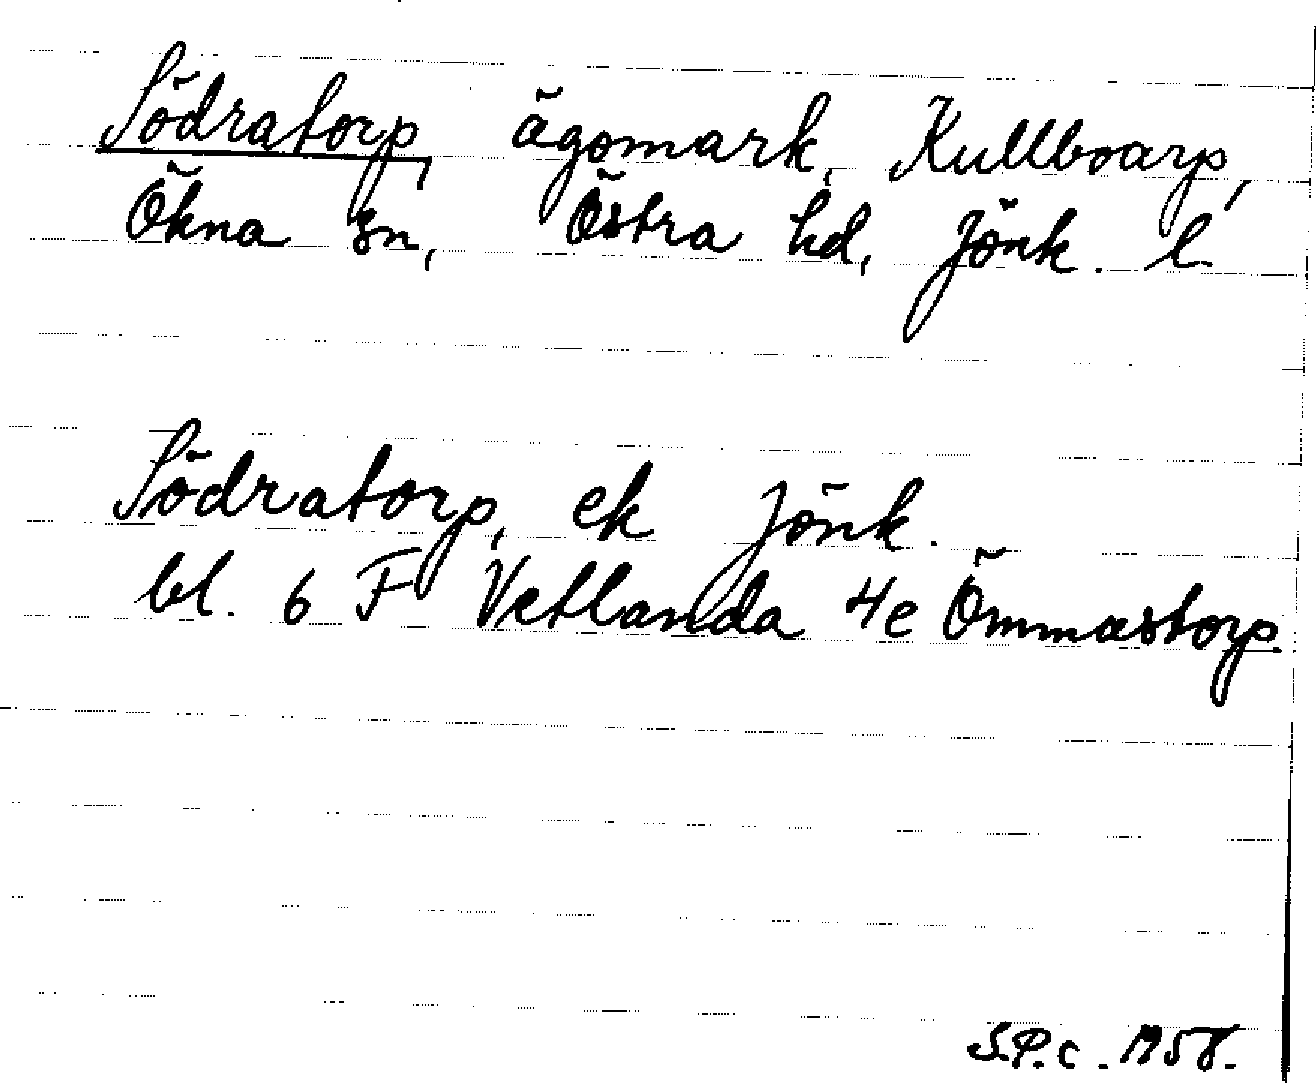 Södratorp, ägomark, Kullboarp,
Ökna sn, Östra hd, Jönk. l
Södratorp, ek Jönk.
bl. 6 F Vetlanda 4e Ömmastorp.
S.P.c. 1958.